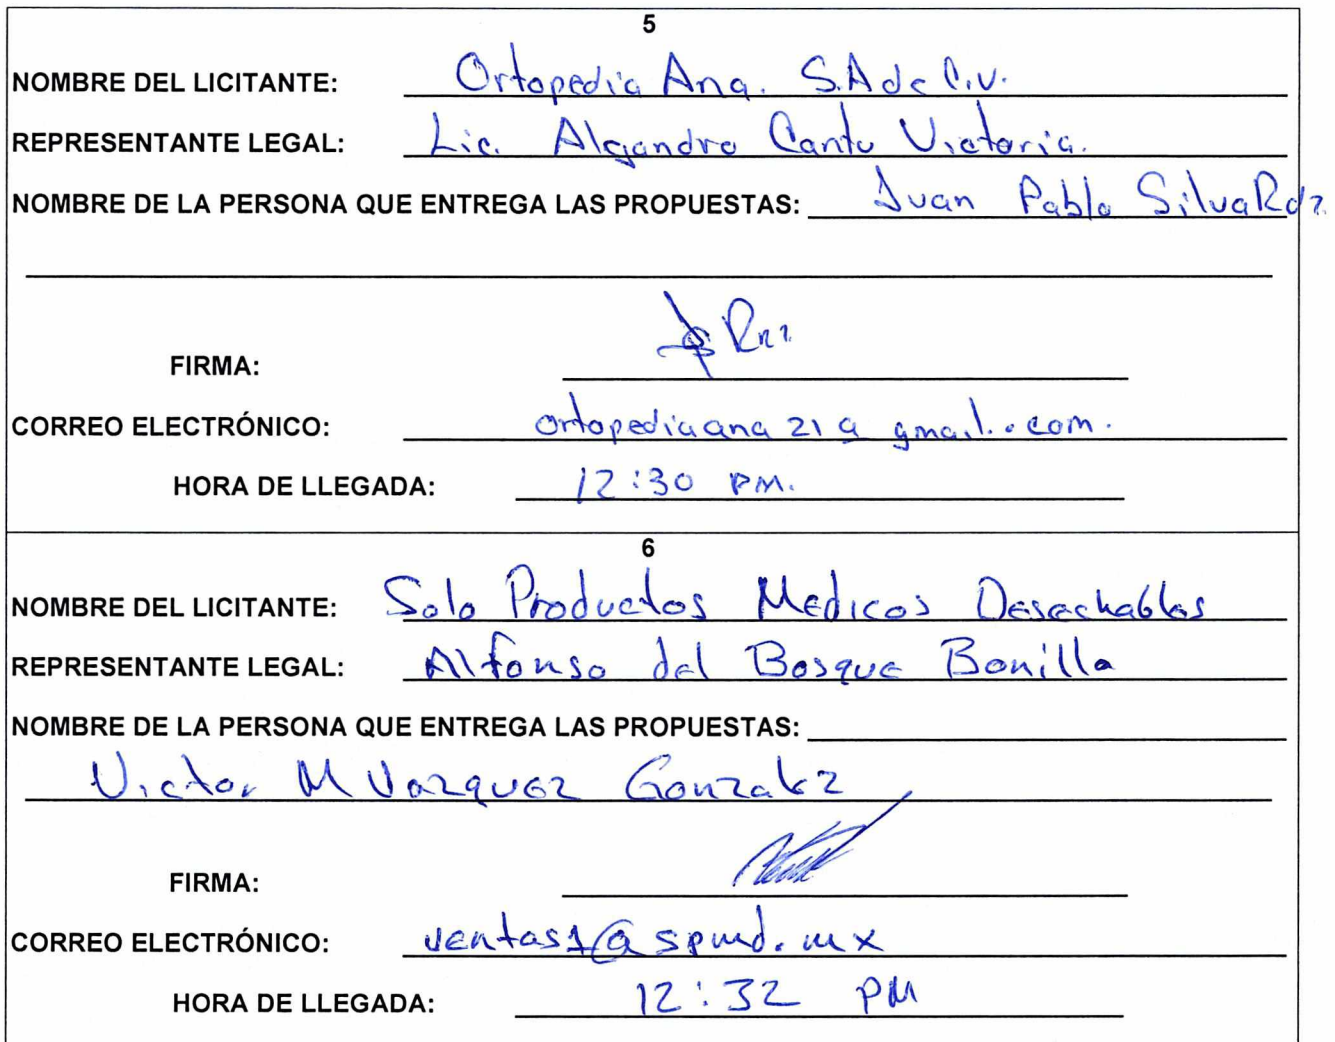 5
NOMBRE DEL LICITANTE: Ortopedia Ana. S.A de C.V.
REPRESENTANTE LEGAL: Lic. Alejandro Cantu Victoria.
NOMBRE DE LA PERSONA QUE ENTREGA LAS PROPUESTAS: Juan Pablo Silva Rdz.
FIRMA:
CORREO ELECTRÓNICO: ortopediaana 21 @ gmail.com.
HORA DE LLEGADA: 12:30 PM.
6
NOMBRE DEL LICITANTE: Solo Productos Medicos Desechables
REPRESENTANTE LEGAL: Alfonso del Bosque Bonilla
NOMBRE DE LA PERSONA QUE ENTREGA LAS PROPUESTAS:
Victor M Vazquez Gonzalez
FIRMA:
CORREO ELECTRÓNICO: ventas1@spmd.mx
HORA DE LLEGADA: 12:32 PM